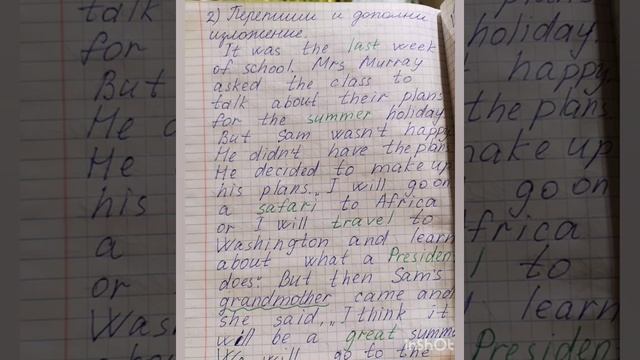 2) Перепиши и дополни
изложение.
It was the last week
of school. Mrs Murray
asked the class to
talk about their plans
for the summer holiday
But Sam wasn't happy
He didn't have the plans
He decided to make up
his plans. „I will go on
a safari to Africa
or I will travel to
Washington and learn
about what a President
does." But then Sam's
grandmother came and
she said, „I think it
will be a great summ
We will go to the
InShOt